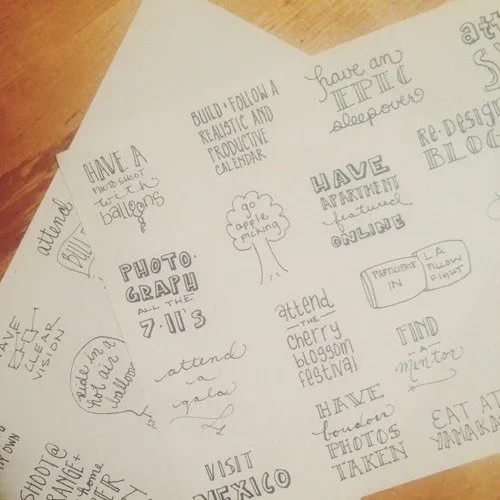 have an
EPIC
sleepover
BUILD + FOLLOW A
REALISTIC AND
PRODUCTIVE
CALENDAR
RE-DESIGN
BLOG
HAVE A
PHOTOSHOOT
with
balloons
HAVE
APARTMENT
featured
ONLINE
go
apple
picking
attend
PHOTO-
GRAPH
ALL THE
7-11'S
PARTICIPATE
IN
LA
PILLOW
FIGHT
attend
THE
cherry
blossom
festival
FIND
A
mentor
HAVE
CLEAR
VISION
ride in a
hot air
balloon
attend
a
gala
HAVE
boudoir
PHOTOS
TAKEN
EAT AT
VISIT
MEXICO
MY OWN
SHOOT @
home